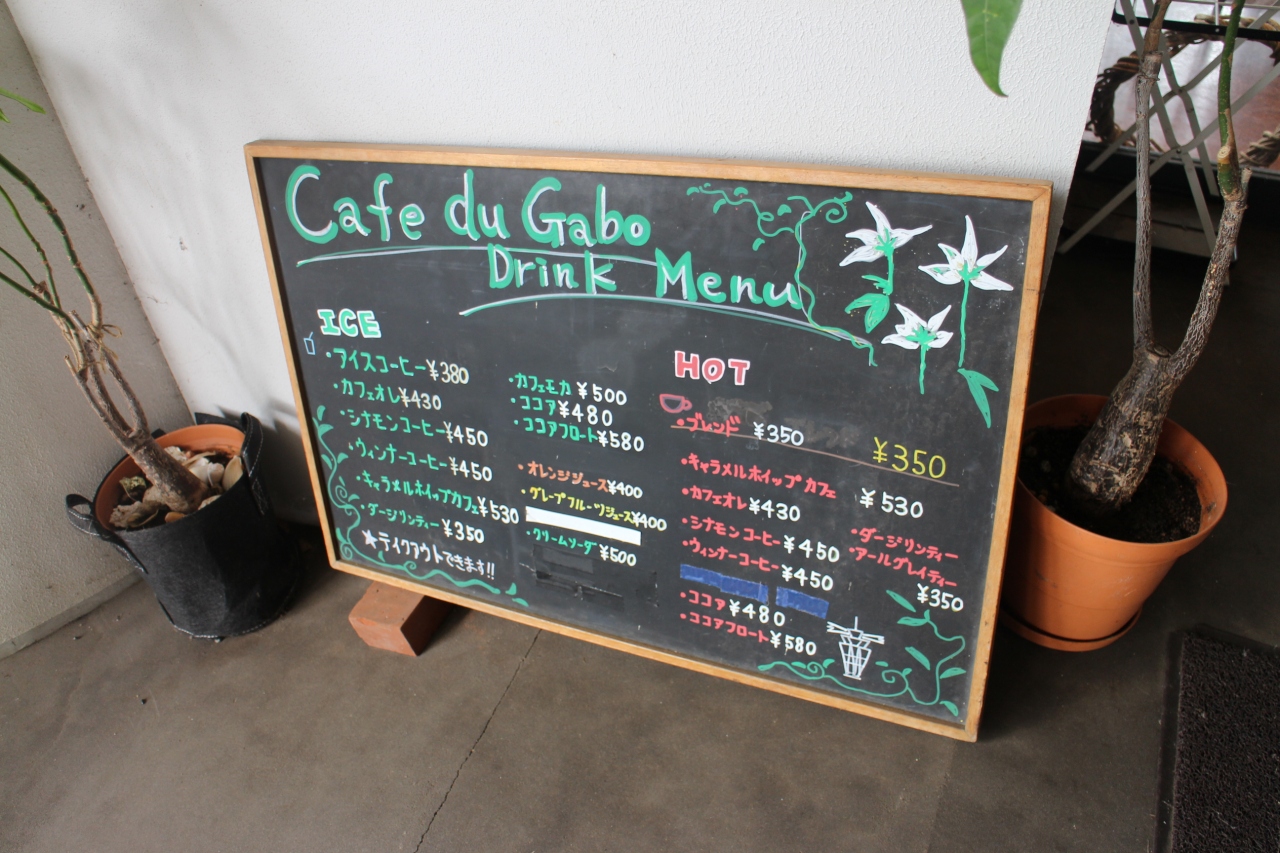 Cafe du Gabo
Drink Menu
ICE
・アイスコーヒー ¥380
・カフェオレ ¥430
・シナモンコーヒー ¥450
・ウィンナーコーヒー ¥450
・キャラメルホイップカフェ ¥530
・ダージリンティー ¥350
★テイクアウトできます!!
・カフェモカ ¥500
・ココア ¥480
・ココアフロート ¥580
・オレンジジュース ¥400
・グレープフルーツジュース ¥400
・クリームソーダ ¥500
HOT
・ブレンド ¥350 ¥350
・キャラメルホイップカフェ ¥530
・カフェオレ ¥430
・シナモンコーヒー ¥450
・ウィンナーコーヒー ¥450
・ココア ¥480
・ココアフロート ¥580
・ダージリンティー
・アールグレイティー
¥350